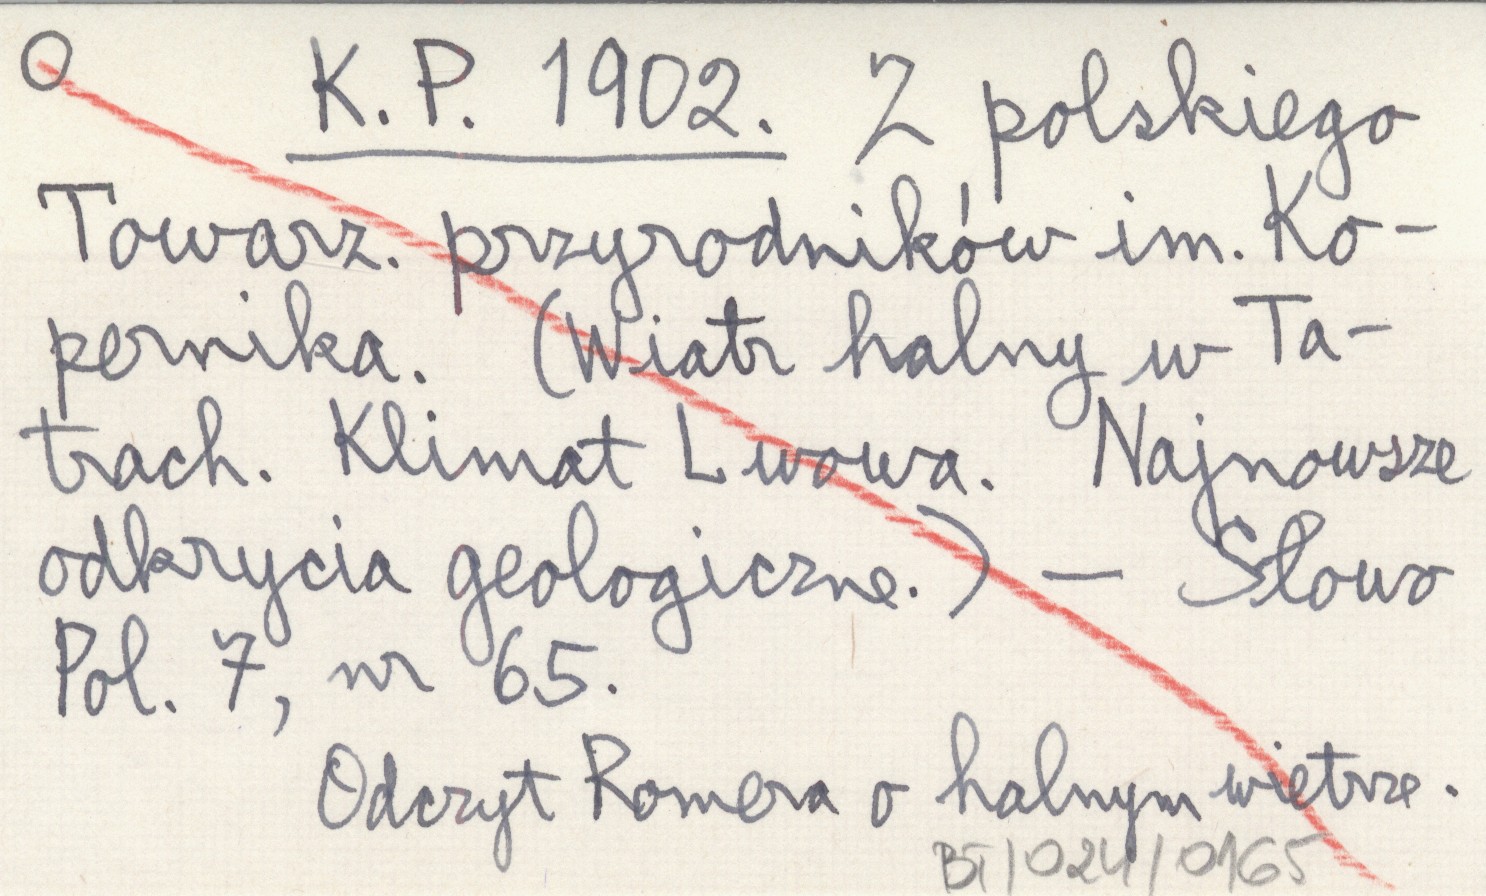 K. P. 1902. Z polskiego
Towarz. przyrodników im. Ko-
pernika. (Wiatr halny w Ta-
trach. Klimat Lwowa. Najnowsze
odkrycia geologiczne.) — Słowo
Pol. 7, nr 65.
Odczyt Romera o halnym wietrze.
BT/024/0165